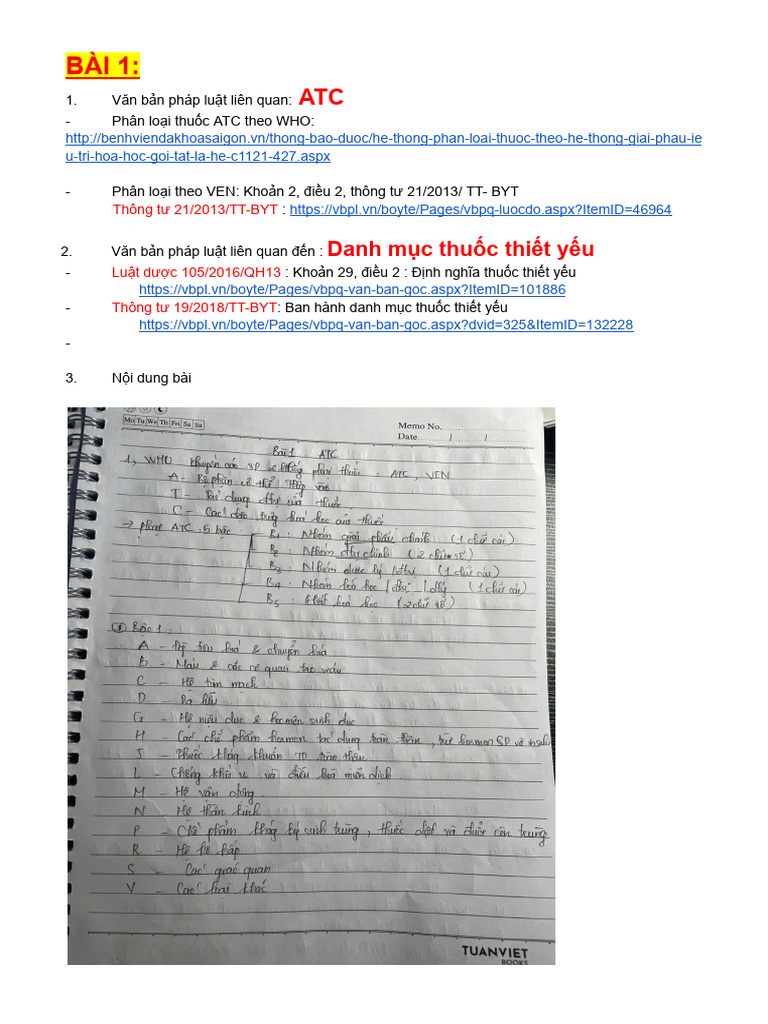 BÀI 1:
1. Văn bản pháp luật liên quan: ATC
- Phân loại thuốc ATC theo WHO:
http://benhviendakhoasaigon.vn/thong-bao-duoc/he-thong-phan-loai-thuoc-theo-he-thong-giai-phau-ie
u-tri-hoa-hoc-goi-tat-la-he-c1121-427.aspx
- Phân loại theo VEN: Khoản 2, điều 2, thông tư 21/2013/ TT- BYT
Thông tư 21/2013/TT-BYT : https://vbpl.vn/boyte/Pages/vbpq-luocdo.aspx?ItemID=46964
2. Văn bản pháp luật liên quan đến : Danh mục thuốc thiết yếu
- Luật dược 105/2016/QH13 : Khoản 29, điều 2 : Định nghĩa thuốc thiết yếu
https://vbpl.vn/boyte/Pages/vbpq-van-ban-goc.aspx?ItemID=101886
- Thông tư 19/2018/TT-BYT: Ban hành danh mục thuốc thiết yếu
https://vbpl.vn/boyte/Pages/vbpq-van-ban-goc.aspx?dvid=325&ItemID=132228
-
3. Nội dung bài
Mo Tu We Th Fri Sa Su
Memo No.
Date / /
Bài 1 ATC
1, WHO khuyến cáo SD hệ thống phân thuốc : ATC, VEN
A - Bộ phận cơ thể
T - Tác dụng đtrị của thuốc
C - Các đặc trưng hoá học của thuốc
→ phân ATC : 5 bậc
B1 : Nhóm giải phẫu chính (1 chữ cái)
B2 : Nhóm đtrị chính (2 chữ số)
B3 : Nhóm dược lý / đtrị (1 chữ cái)
B4 : Nhóm hoá học / đtrị / dlý (1 chữ cái)
B5 : Chất hoá học (2 chữ số)
Bậc 1 :
A - Hệ tiêu hoá & chuyển hoá
B - Máu & các cơ quan tạo máu
C - Hệ tim mạch
D - Da liễu
G - Hệ niệu dục & hocmon sinh dục
H - Các chế phẩm hocmon tác dụng toàn thân, trừ hocmon SD và insulin
J - Thuốc kháng khuẩn TD toàn thân
L - Chống khối u và điều hoà miễn dịch
M - Hệ vận động
N - Hệ thần kinh
P - Chế phẩm kháng ký sinh trùng, thuốc diệt và đuổi côn trùng
R - Hệ hô hấp
S - Các giác quan
V - Các loại khác
TUANVIET
BOOKS